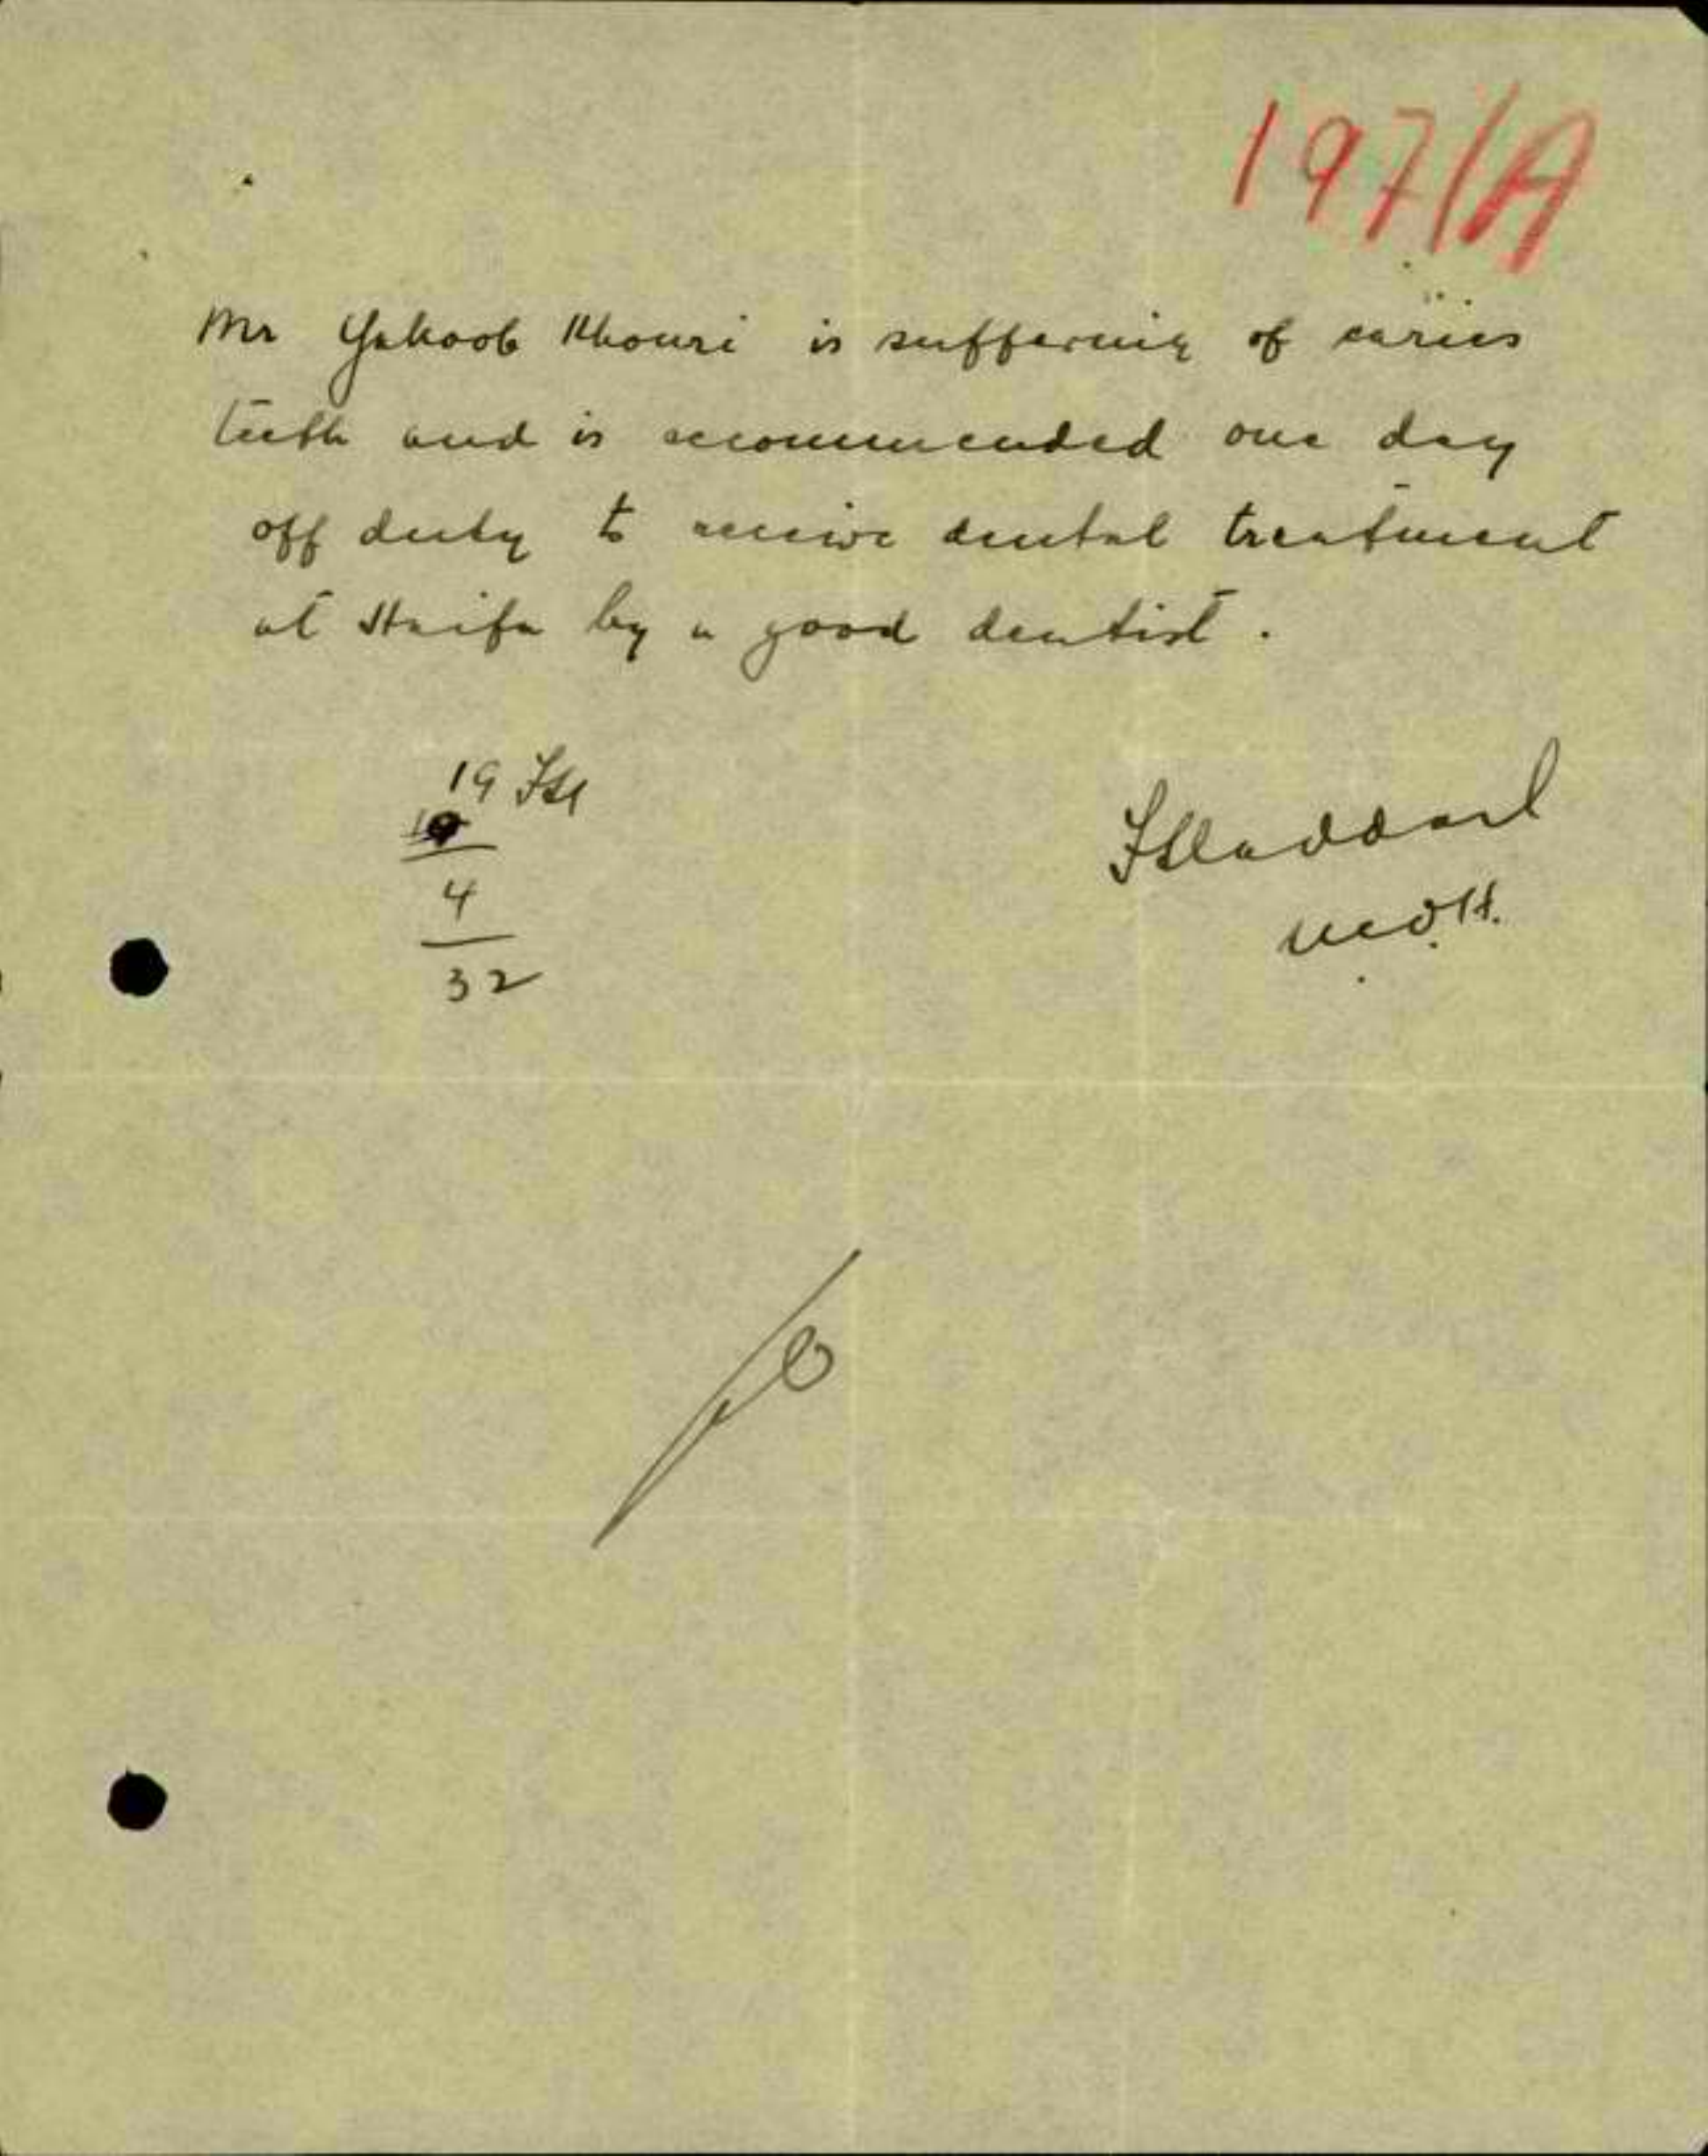 197/A
Mr Yakoob Khouri is suffering of caries
teeth and is recommended one day
off duty to receive dental treatment
at Haifa by a good dentist.
19 FH
4
32
FHaddad
M.O.H.